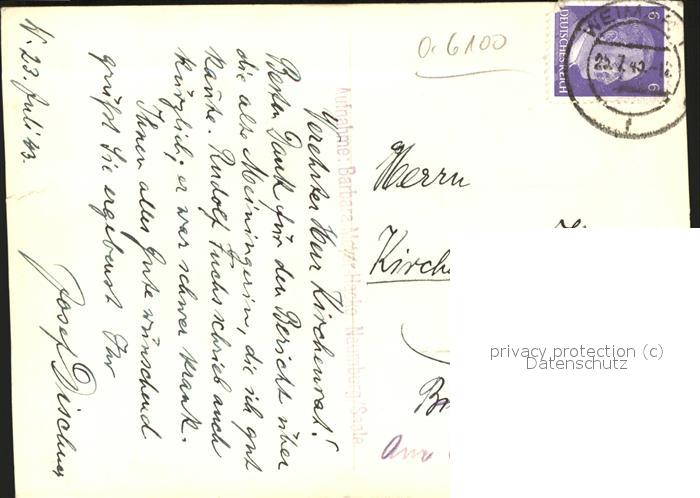 W. 23. Juli 43.
Verehrter Herr Kirchenrat!
Besten Dank für den Bericht über
die alte Meiningerin, die ich gut
kannte. Rudolf Fuchs schrieb auch
kürzlich; er war schwer krank.
Ihnen alles Gute wünschend
grüßt Sie ergebenst Ihr
Josef
Aufnahme: Barbara
Naumburg/Saale
0.6100
WEIMAR
DEUTSCHES REICH
6
6
Herrn
Kirche
privacy protection (c)
Datenschutz